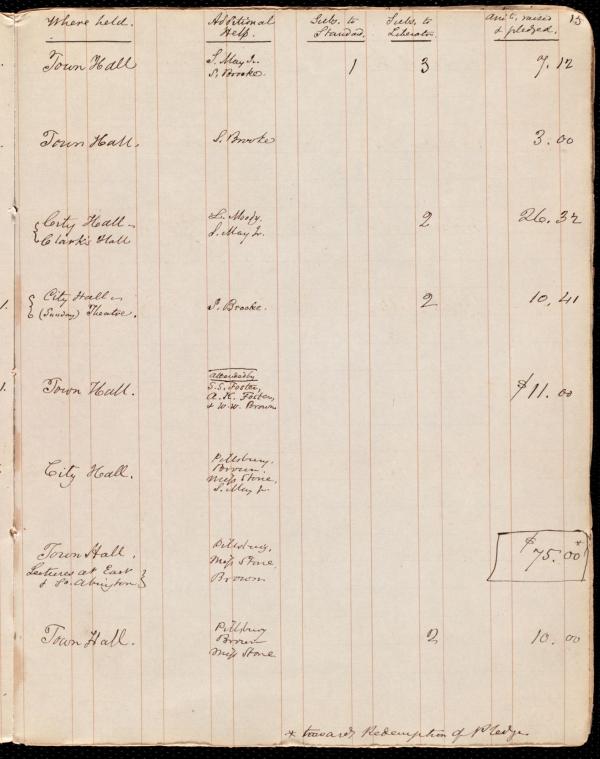 15
Where held. Additional Subs. to Subs. to Am't. raised
Help. Standard. Liberator. & pledged.
Town Hall S. May Jr. 1 3 7.12
S. Brooke.
Town Hall. S. Brooke 3.00
City Hall - L. Moody. 2 26.32
Clark's Hall S. May Jr.
1. City Hall - S. Brooke. 2 10.41
(Sunday) Theatre.
attended by
1. Town Hall. S.S. Foster, $11.00
A.K. Foster,
& W.W. Brown
City Hall. Pillsbury.
Brown.
Miss Stone.
S. May Jr
Town Hall. Pillsbury, $75.00*
Lectures at East Miss Stone
& So. Abington Brown
Town Hall. Pillsbury 2 10.00
Brown
Miss Stone
* towards Redemption of Pledge.